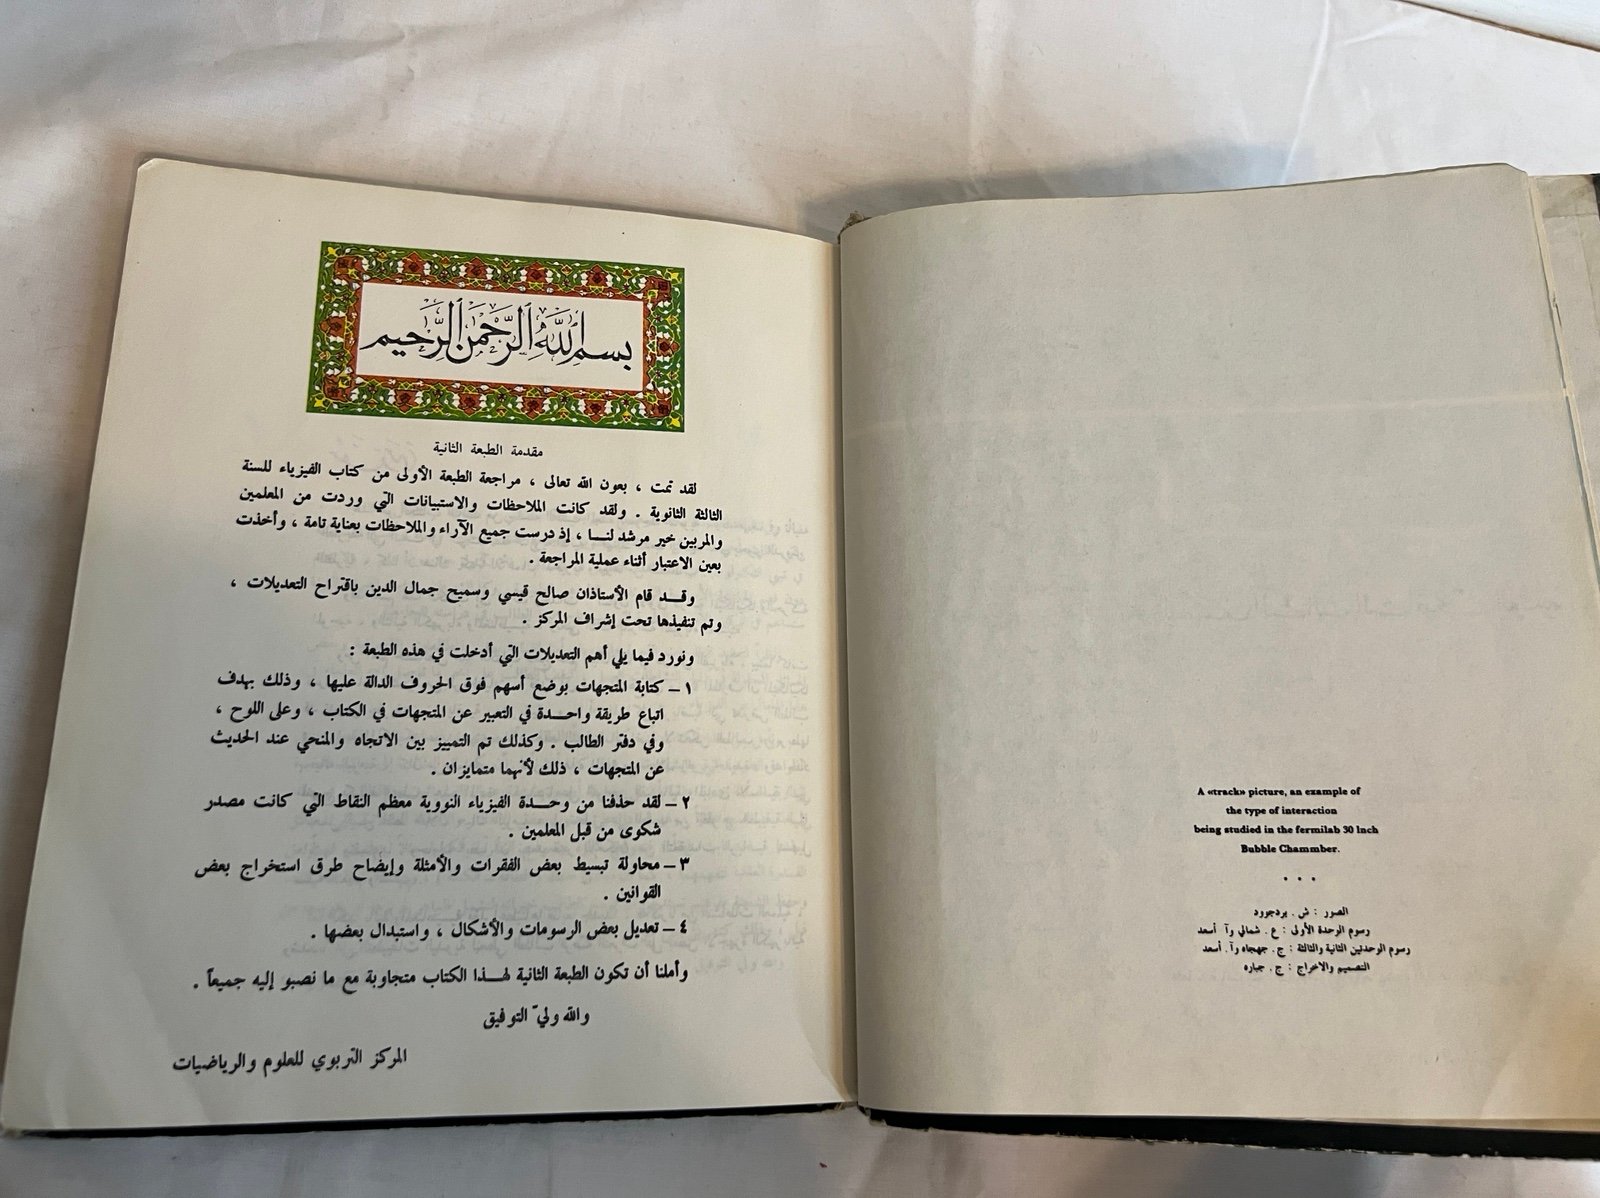 بسم الله الرحمن الرحيم
مقدمة الطبعة الثانية
لقد تمت ، بعون الله تعالى ، مراجعة الطبعة الأولى من كتاب الفيزياء للسنة
الثالثة الثانوية . ولقد كانت الملاحظات والاستبيانات التي وردت من المعلمين
والمربين خير مرشد لنا ، إذ درست جميع الآراء والملاحظات بعناية تامة ، وأخذت
بعين الاعتبار أثناء عملية المراجعة .
وقد قام الأستاذان صالح قيسي وسميح جمال الدين باقتراح التعديلات ،
وتم تنفيذها تحت إشراف المركز .
ونورد فيما يلي أهم التعديلات التي أدخلت في هذه الطبعة :
١ – كتابة المتجهات بوضع أسهم فوق الحروف الدالة عليها ، وذلك بهدف
اتباع طريقة واحدة في التعبير عن المتجهات في الكتاب ، وعلى اللوح ،
وفي دفتر الطالب . وكذلك تم التمييز بين الاتجاه والمنحي عند الحديث
عن المتجهات ، ذلك لأنهما متمايزان .
٢ – لقد حذفنا من وحدة الفيزياء النووية معظم النقاط التي كانت مصدر
شكوى من قبل المعلمين .
٣ – محاولة تبسيط بعض الفقرات والأمثلة وإيضاح طرق استخراج بعض
القوانين .
٤ – تعديل بعض الرسومات والأشكال ، واستبدال بعضها .
وأملنا أن تكون الطبعة الثانية لهذا الكتاب متجاوبة مع ما نصبو إليه جميعاً .
والله وليّ التوفيق
المركز التربوي للعلوم والرياضيات
A «track» picture, an example of
the type of interaction
being studied in the fermilab 30 Inch
Bubble Chammber.
• • •
الصور : ش . بردجوود
رسوم الوحدة الأولى : ع . شمالي وآ . أسعد
رسوم الوحدتين الثانية والثالثة : ج . جهجاه وآ . أسعد
التصميم والاخراج : ج . جباره